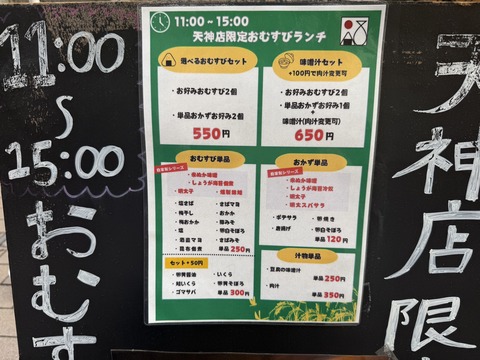 11:00
~
15:00
おむす
天神店限
11:00~15:00
天神店限定おむすびランチ
選べるおむすびセット
・お好みおむすび2個
・単品おかずお好み2個
550円
味噌汁セット
+100円で肉汁変更可
・お好みおむすび2個
・単品おかずお好み1個
+
味噌汁(肉汁変更可)
650円
おむすび単品
・赤ぬか味噌
・しょうが海苔佃煮
・明太子
・塩さば
・さばマヨ
・梅干し
・おかか
・梅おかか
・塩
・卵白そぼろ
・さばみそ
・昆布佃煮
単品 250円
セット+50円
・卵黄醤油
・いくら
・鮭いくら
・卵黄そぼろ
・ゴマサバ
単品 300円
おかず単品
・赤ぬか味噌
・明太子
・明太スパサラ
・ポテサラ
・卵焼き
・唐揚げ
・卵白そぼろ
単品 120円
汁物単品
・豆腐の味噌汁
単品 250円
・肉汁
単品 350円